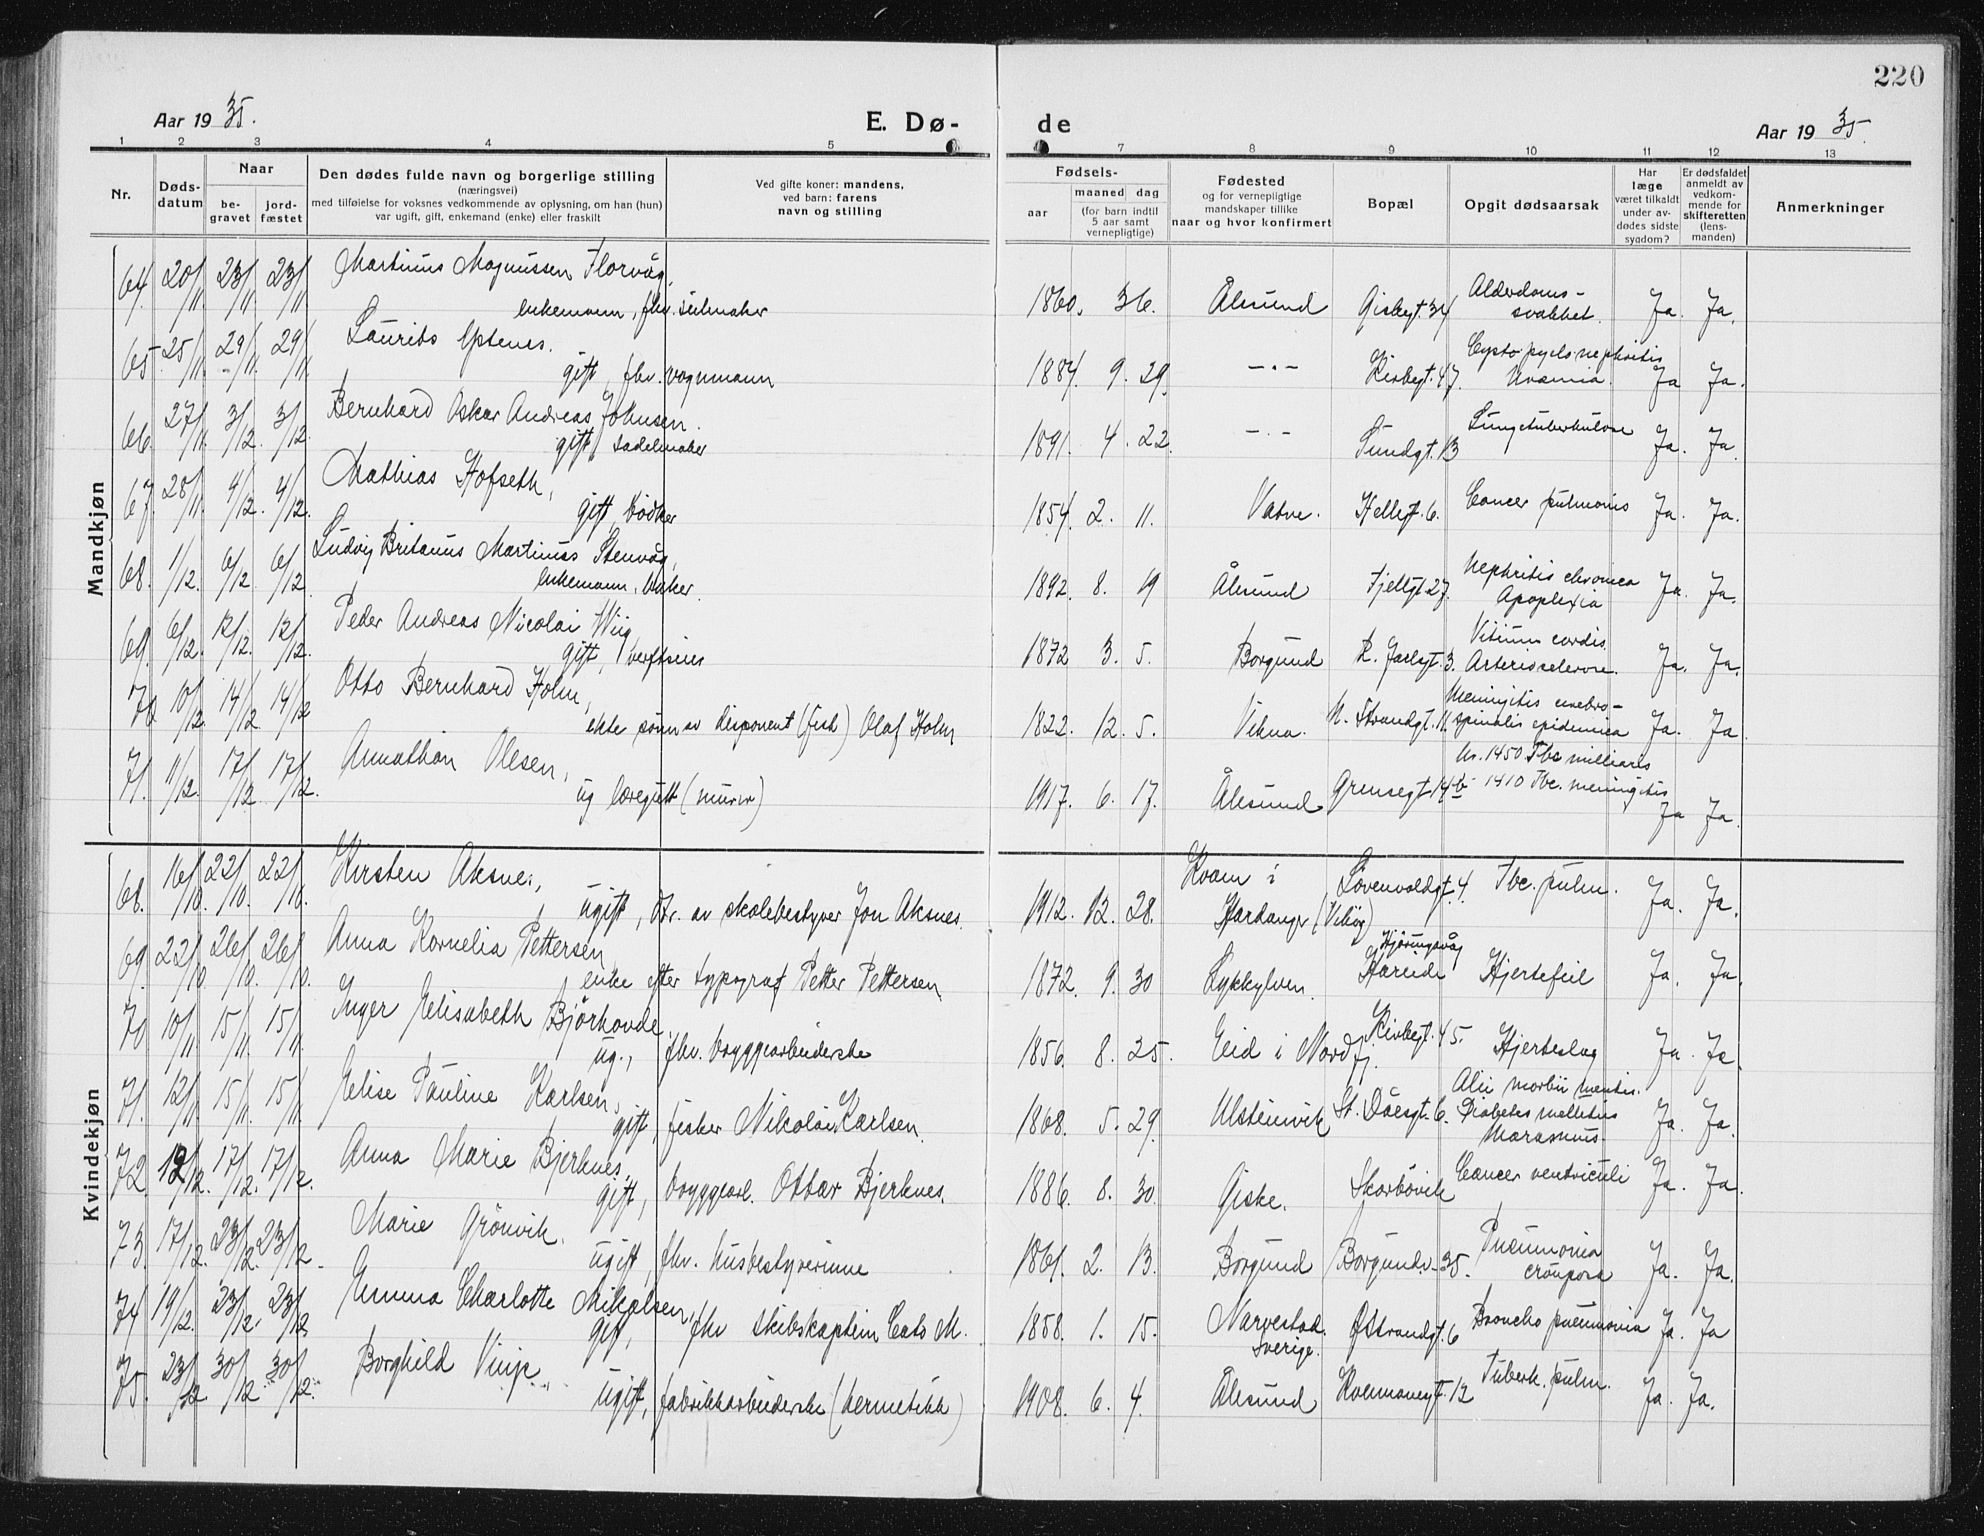 220
Aar 1935.
E. Dø-
de
Aar 1935.
1 2 3 4 5 7 8 9 10 11 12 13
Nr.
Døds-
datum
Naar
be-
gravet
jord-
fæstet
Den dødes fulde navn og borgerlige stilling
(næringsvei)
med tilføielse for voksnes vedkommende av oplysning, om han (hun)
var ugift, gift, enkemand (enke) eller fraskilt
Ved gifte koner: mandens,
ved barn: farens
navn og stilling
Fødsels-
aar
maaned dag
(for barn indtil
5 aar samt
vernepligtige)
Fødested
og for vernepligtige
mandskaper tillike
naar og hvor konfirmert
Bopæl
Opgit dødsaarsak
Har
læge
været tilkaldt
under av-
dødes sidste
sygdom?
Er dødsfaldet
anmeldt av
vedkom-
mende for
skifteretten
(lens-
manden)
Anmerkninger
Mandkjøn
64. 20/11. 23/11. 23/11. Martinus Magnussen Florvåg,
enkemann, fhv. seilmaker 1860. 3 6. Ålesund 34 Alderdoms-
svakhet. Ja. Ja.
65 25/11. 29/11. 29/11.
gift, fhv. vognmann 1884. 9. 29. -"- Kirkegt. 47. Cysto pyelo nephritis
Uræmia. Ja Ja.
66. 27/11. 3/12. 3/12. Bernhard Oskar Andreas Johnsen.
gift, sadelmaker 1891. 4. 22. -"- Sundgt. 13 Lungetuberkulose Ja. Ja.
67. 28/11. 4/12. 4/12. Mathias Hofseth,
gift, bødker 1854. 2. 11. Vatne. Hellegt. 6. Cancer pulmonis Ja. Ja.
68. 1/12. 6/12 6/12. Ludvig Britanus Martinus Stenvåg,
enkemann, baker. 1892. 8. 19 Ålesund Fjellgt. 27. Nephritis chronica
Apoplexia Ja. Ja.
69. 6/12. 12/12. 12/12. Peder Andreas Nicolai Wiig
gift, verftseier 1872 3. 5. Borgund R. Jarlsgt. 3. Vitium cordis.
Arteriosclerose. Ja. Ja.
70 10/12 14/12 14/12 Otto Bernhard Holm,
ekte sønn av disponent (fisk) Olaf Holm 1822. 12. 5. Vikna. N. Strandgt. 11. Meningitis cerebro-
spinalis epidemica Ja. Ja
71. 11/12. 17/12. 17/12. Annathon Olesen,
ug læregutt (murer) 1917. 6. 17. Ålesund Grensegt 14b Nr. 1450 Tbc milliaris
1410 Tbc. meningitis
Ja Ja.
Kvindekjøn
68. 16/10. 22/10. 22/10. Kirsten Aksnes,
ugift, dtr. av skolebestyrer Jon Aksnes. 1912. 12. 28. Kvam i
Hardanger Løvenvoldgt. 4. Tbc. pulm. Ja. Ja.
69. 22/10 26/10. 26/10. Anna Kornelia Pettersen
enke efter typograf Petter Pettersen 1872. 9. 30 Sykkylven. Hjørungavåg
Hareide Hjertefeil Ja. Ja.
70 10/11 15/11. 15/11. Inger Elisabeth Bjørhovde,
ug., fhv. bryggearbeiderske 1856. 8. 25. Eid i Nordfj. Kirkegt. 45. Hjerteslag Ja. Ja
71. 12/11 15/11. 15/11. Elise Pauline Karlsen,
gift, fisker Nikolai Karlsen. 1868. 5. 29. Ulsteinvik St. Olavsgt. 6. Alii morbii mentis.
Diabetes mellitus
Marasmus. Ja. Ja.
72. 12/12. 17/12. 17/12. Anna Marie Bjerknes,
gift, bryggearb. Ottar Bjerknes. 1886. 8. 30. Giske. Skarbøvik Cancer ventriculi Ja. Ja.
73. 17/12. 23/12. 23/12. Marie Grønvik.
ugift, fhv. husbestyrerinne 1861. 2. 13. Borgund Borgundv. 35. Pneumonia
crouposa Ja. Ja.
74 19/12. 23/12. 23/12 Emma Charlotte Mikalsen,
gift, fhv skibskaptein Carl M. 1858. 1. 15. Narvestad.
Sverige. Ø Strandgt. 6 Broncho pneumonia Ja. Ja
75. 23/12 30/12. 30/12. Borghild Vinje.
ugift, fabrikkarbeiderske (hermetikk) 1908. 6. 4. Ålesund 12 Tuberk. pulm. Ja. Ja.